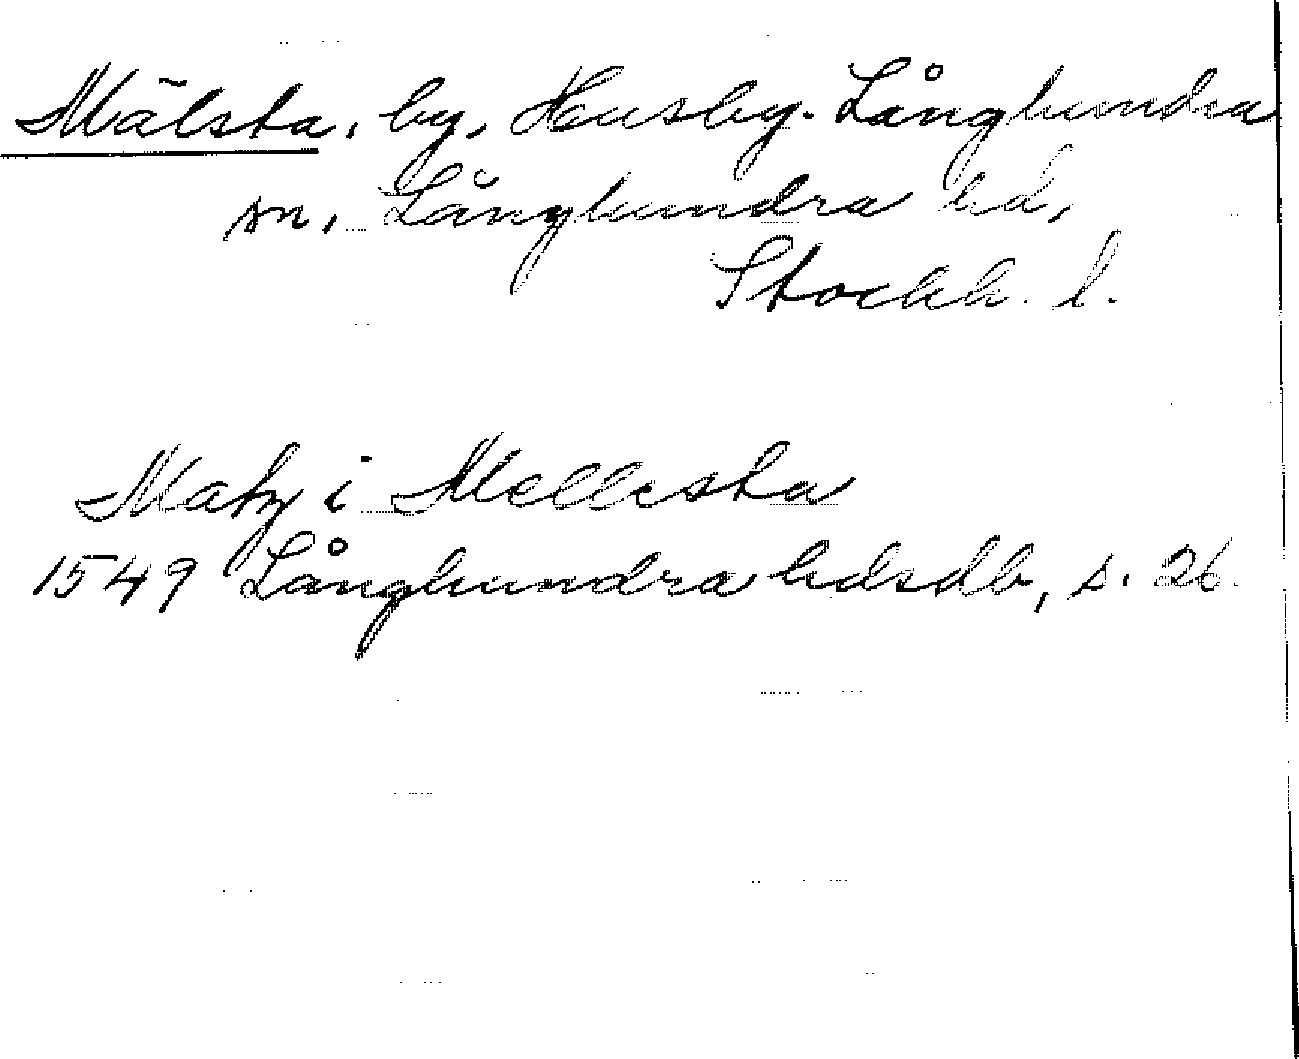 Mälsta, by, Husby-Långhundra
sn, Långhundra hd,
Stockh. l.
Matz i Mellesta
1549 Långhundra hdsdb, s. 26.